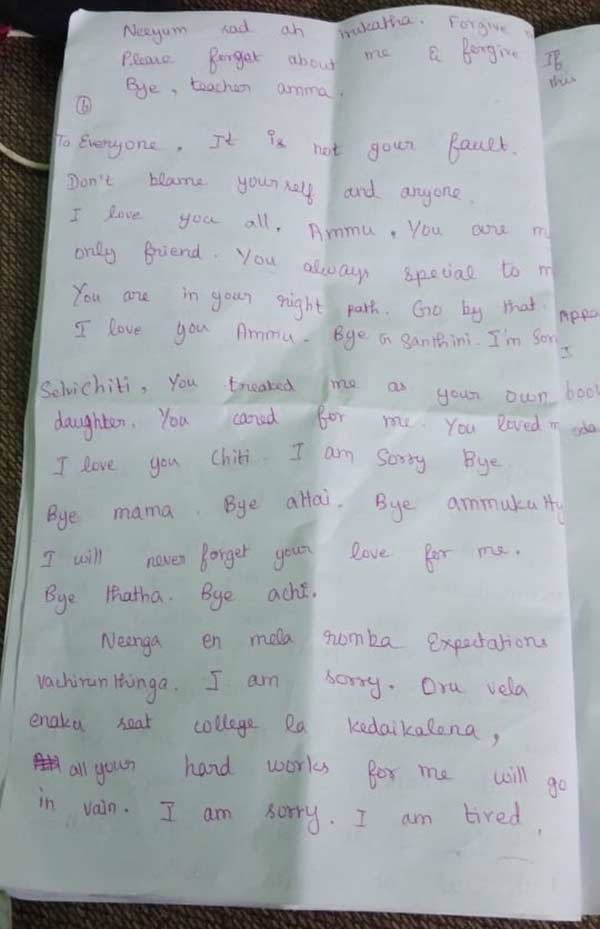 Neeyum sad ah irukatha. Forgive
Please forget about me & forgive
Bye, teacher amma.
6
To Everyone, It is not your fault.
Don't blame yourself and anyone.
I love you all. Ammu, You are
only friend. You always special to
You are in your right path. Go by that.
I love you Ammu. Bye Santhini. I'm
Selvichiti, You treated me as your own
daughter. You cared for me. You loved
I love you Chiti. I am Sorry Bye.
Bye mama. Bye attai. Bye ammukutty
I will never forget your love for me.
Bye thatha. Bye achi.
Neenga en mela romba Expectations
vachirunthinga. I am sorry. Oru vela
enaku seat college la kedaikalena,
all your hard works for me will go
in vain. I am sorry. I am tired.
If
this
Appa
I
book